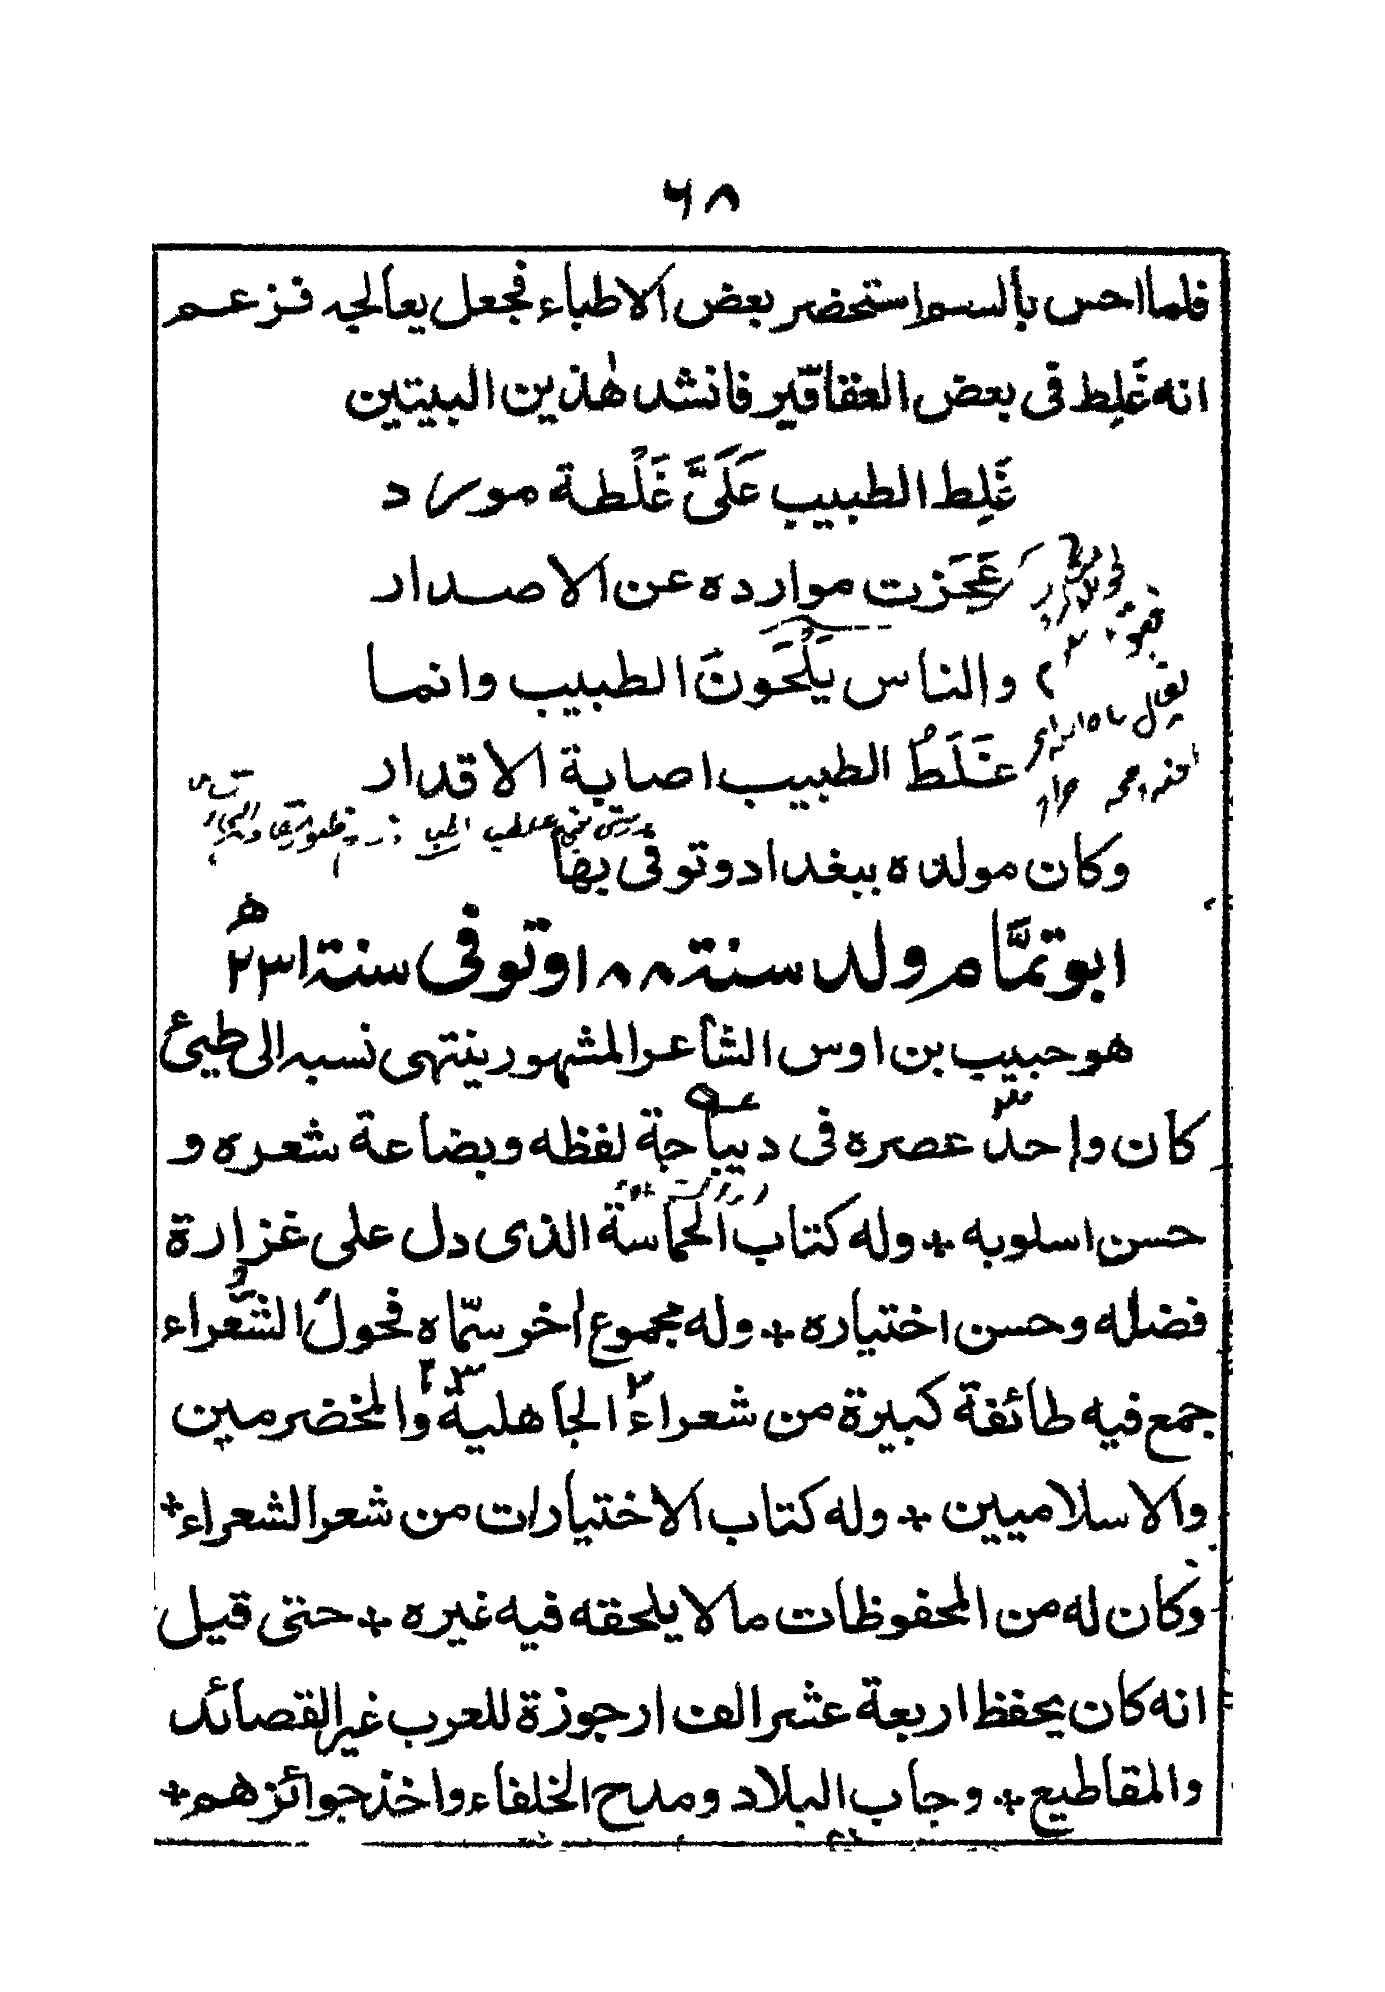 ٦٨
فلما احس بالسم استحضر بعض الاطباء فجعل يعالجه فزعم
انه غَلِط فى بعض العقاقير فانشد هٰذين البيتين
غَلِط الطبيب عَلَىَّ غَلْطة مورد
عَجَزت موارده عن الاصدار
والناس يَلْحَونَ الطبيب وانما
غَلَطُ الطبيب اصابة الاقدار
وكان مولده ببغداد وتوفى بها
ابو تمَّام ولد سنة ١٨٨ وتوفى سنة ٢٣١ ه
هو حبيب بن اوس الشاعر المشهور ينتهى نسبه الى طيئ
كان واحد عصره فى ديباجة لفظه وبضاعة شعره و
حسن اسلوبه + وله كتاب الحماسة الذى دل على غزارة
فضله وحسن اختياره + وله مجموع اخر سمّاه فحول الشعراء
جمع فيه طائفة كبيرة من شعراء الجاهلية والمخضرمين
والاسلاميين + وله كتاب الاختيارات من شعر الشعراء +
وكان له من المحفوظات مالا يلحقه فيه غيره + حتى قيل
انه كان يحفظ اربعة عشر الف ارجوزة للعرب غير القصائد
والمقاطيع + وجاب البلاد ومدح الخلفاء واخذ جوائزهم +